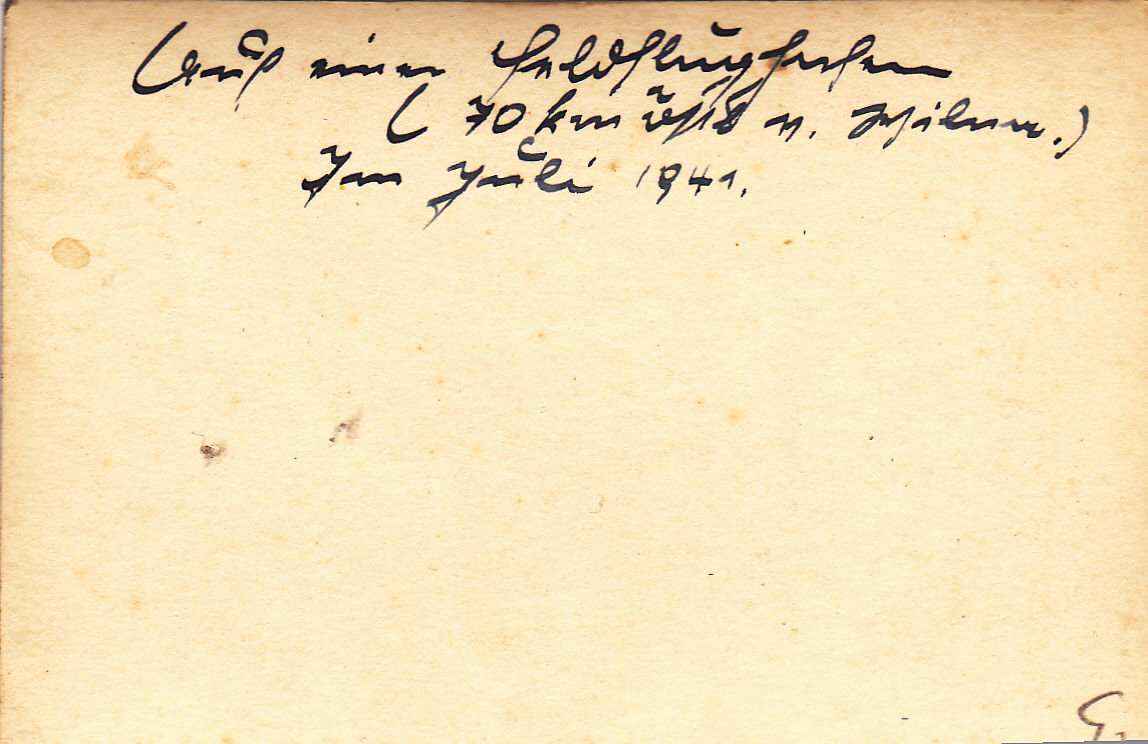 Auf einem Feldflughafen
(70 km östl v. Wilna.)
Im Juli 1941.